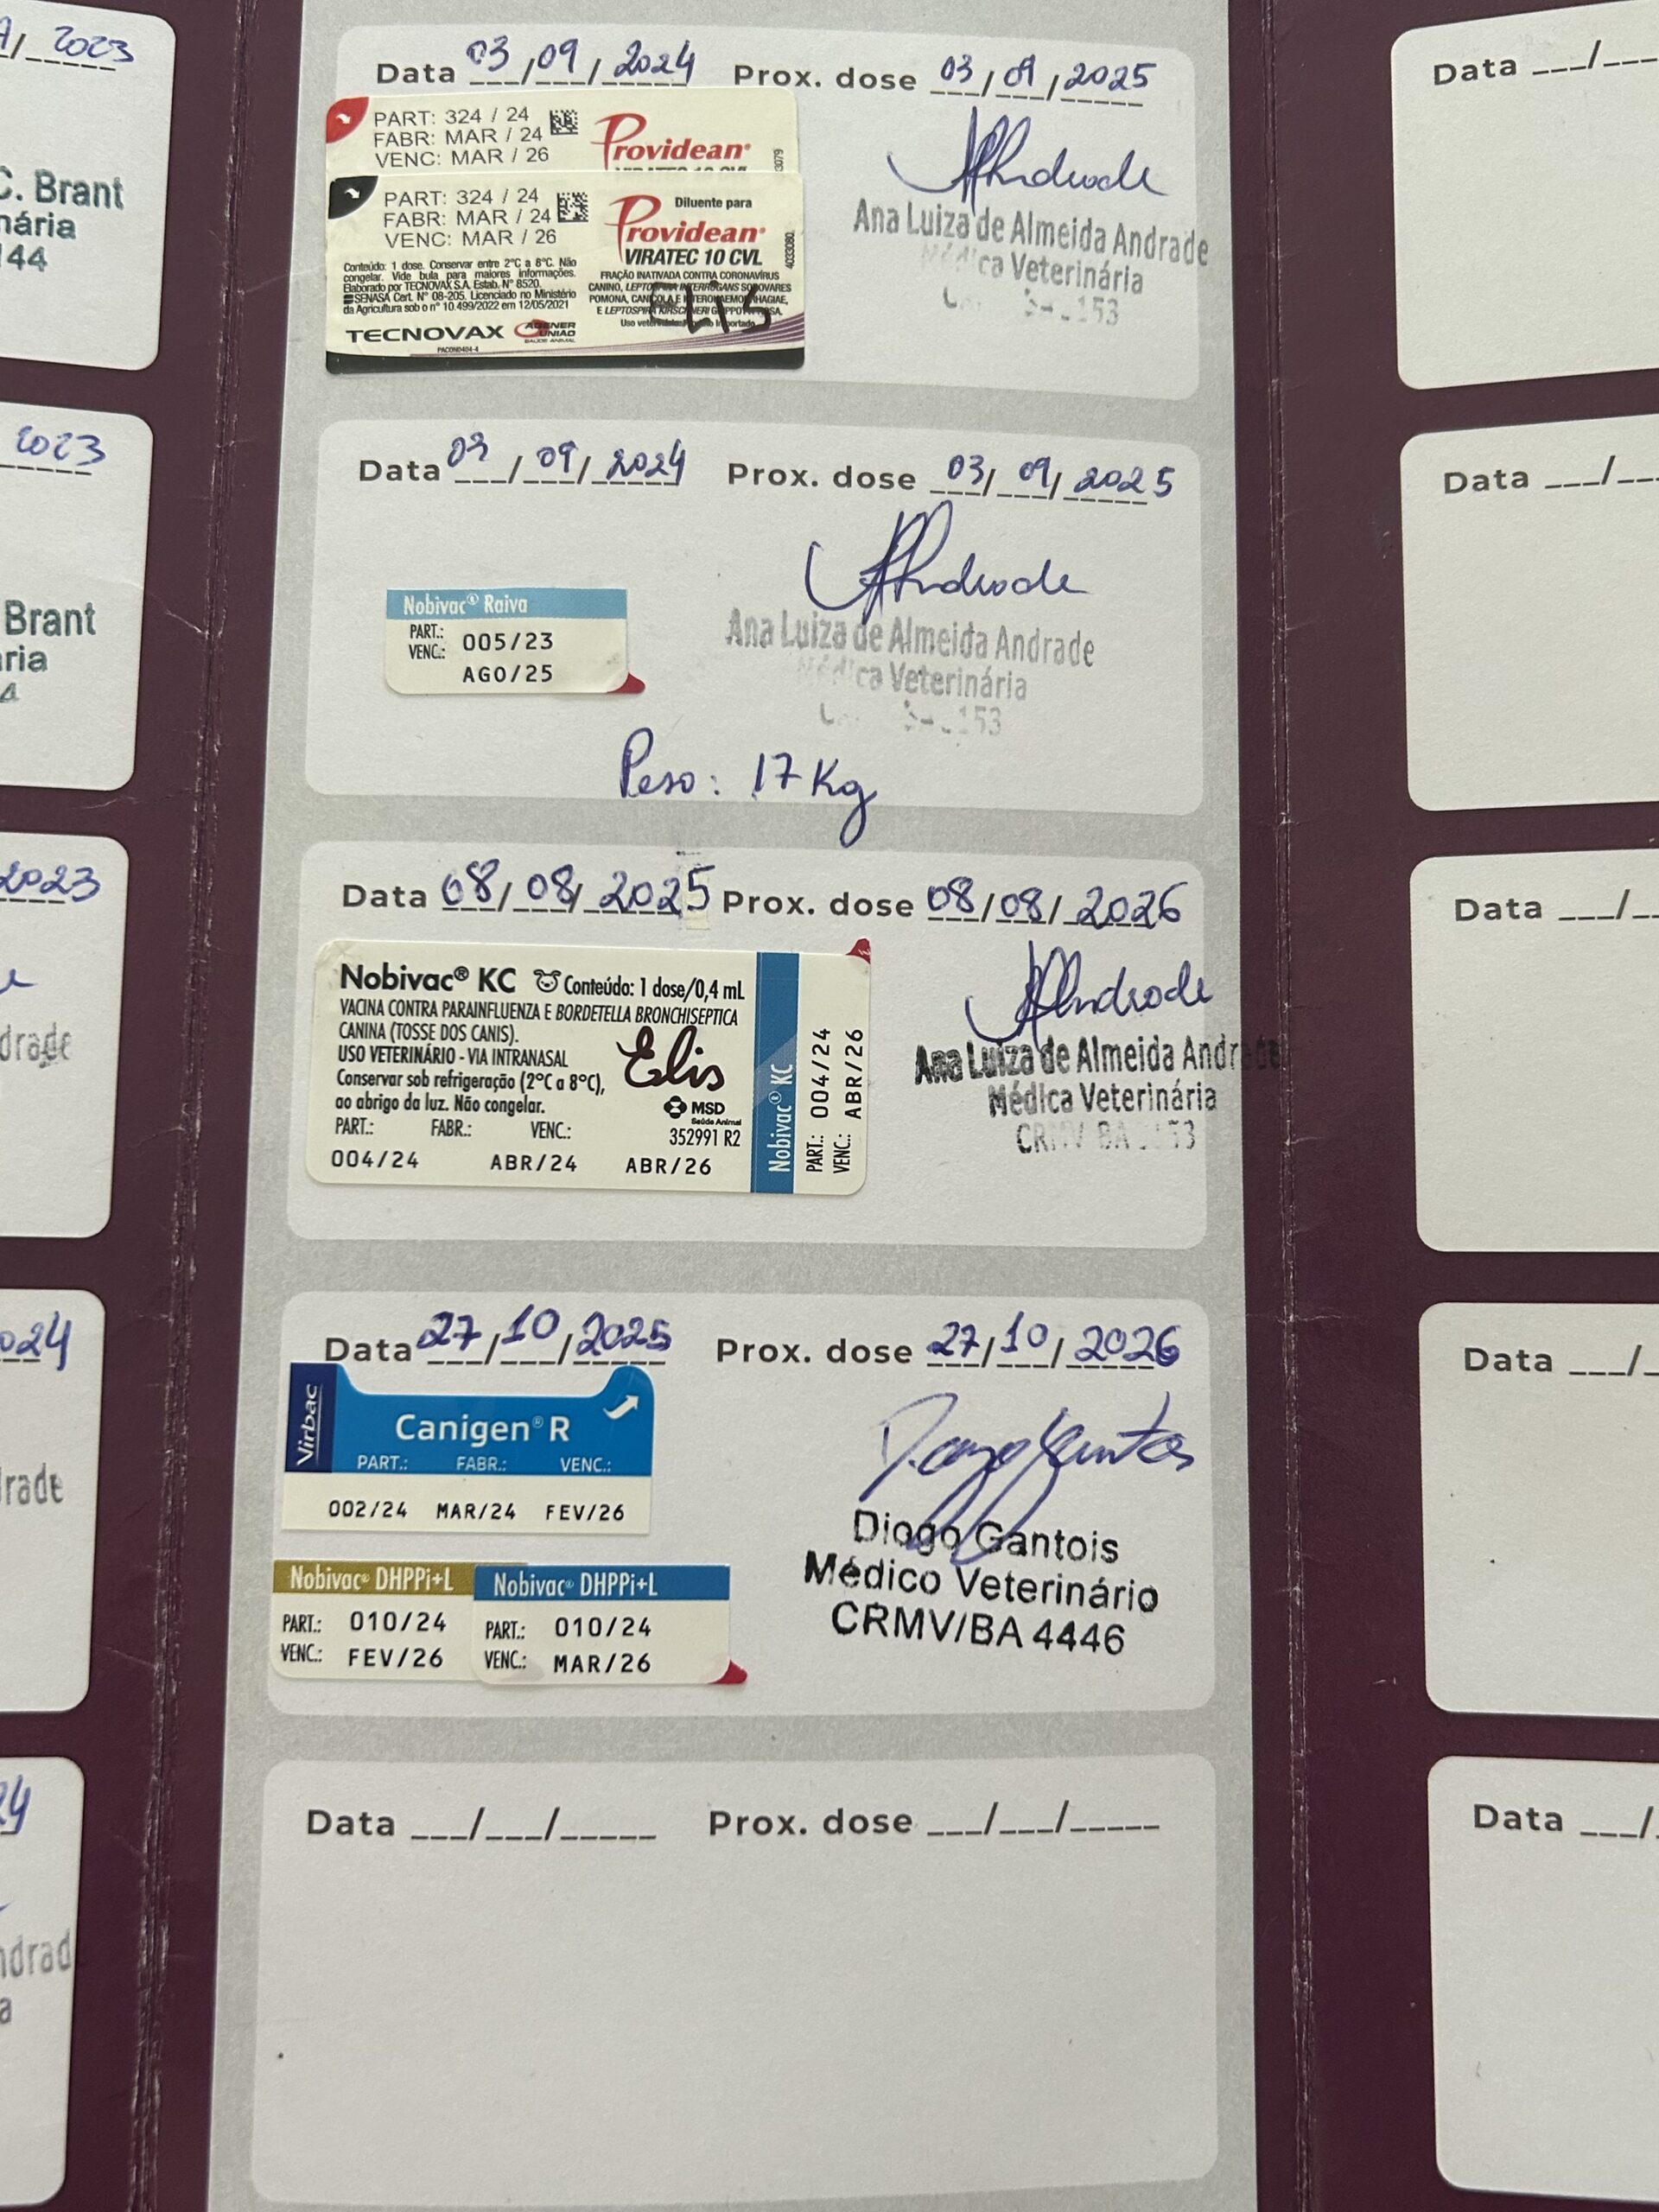 2023
C. Brant
nária
144
2023
Brant
ria
2023
drade
024
rade
24
ndrad
a
Data 03/09/2024 Prox. dose 03/09/2025
PART: 324 / 24
FABR: MAR / 24
VENC: MAR / 26
Providean®
Ana Luiza de Almeida Andrade
Médica Veterinária
153
PART: 324 / 24
FABR: MAR / 24
VENC: MAR / 26
Diluente para
Providean®
VIRATEC 10 CVL
4033080
Conteúdo: 1 dose. Conservar entre 2°C a 8°C. Não
congelar. Vide bula para maiores informações.
Elaborado por TECNOVAX S.A. Estab. N° 8520.
SENASA Cert. N° 08-205. Licenciado no Ministério
da Agricultura sob o n° 10.499/2022 em 12/05/2021
FRAÇÃO INATIVADA CONTRA CORONAVÍRUS
CANINO, LEPTOSPIRA INTERROGANS SOROVARES
POMONA, CANICOLA E
E LEPTOSPIRA KIRSCHNERI
ELIS
TECNOVAX AGENER
UNIÃO
SAÚDE ANIMAL
Data 03/09/2024 Prox. dose 03/09/2025
Nobivac® Raiva
PART.: 005/23
VENC.: AGO/25
Andrade
Ana Luiza de Almeida Andrade
Médica Veterinária
153
Peso: 17 Kg
Data 08/08/2025 Prox. dose 08/08/2026
Nobivac® KC Conteúdo: 1 dose/0,4 mL
VACINA CONTRA PARAINFLUENZA E BORDETELLA BRONCHISEPTICA
CANINA (TOSSE DOS CANIS).
USO VETERINÁRIO - VIA INTRANASAL
Conservar sob refrigeração (2°C a 8°C),
ao abrigo da luz. Não congelar.
Elis
MSD
Saúde Animal
352991 R2
PART.: FABR.: VENC.:
004/24 ABR/24 ABR/26
Nobivac® KC
PART.: 004/24
VENC.: ABR/26
Andrade
Ana Luiza de Almeida Andrade
Médica Veterinária
CRMV BA 153
Data 27/10/2025 Prox. dose 27/10/2026
Virbac
Canigen® R
PART.: FABR.: VENC.:
002/24 MAR/24 FEV/26
Nobivac® DHPPi+L
PART.: 010/24
VENC.: FEV/26
Nobivac® DHPPi+L
PART.: 010/24
VENC.: MAR/26
Diogo Gantois
Médico Veterinário
CRMV/BA 4446
Data ___/___/_____ Prox. dose ___/___/_____
Data ___/___
Data ___/___
Data ___/__
Data ___/_
Data ___/